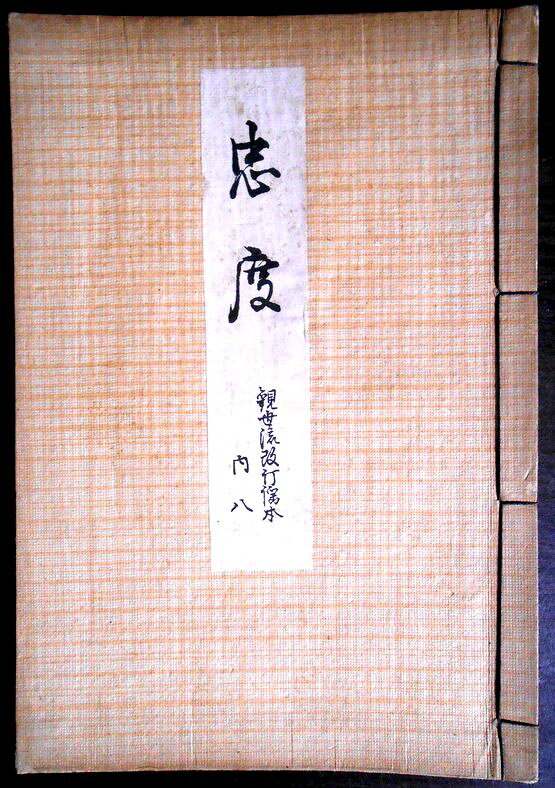 忠度
観世流改訂謡本
内八